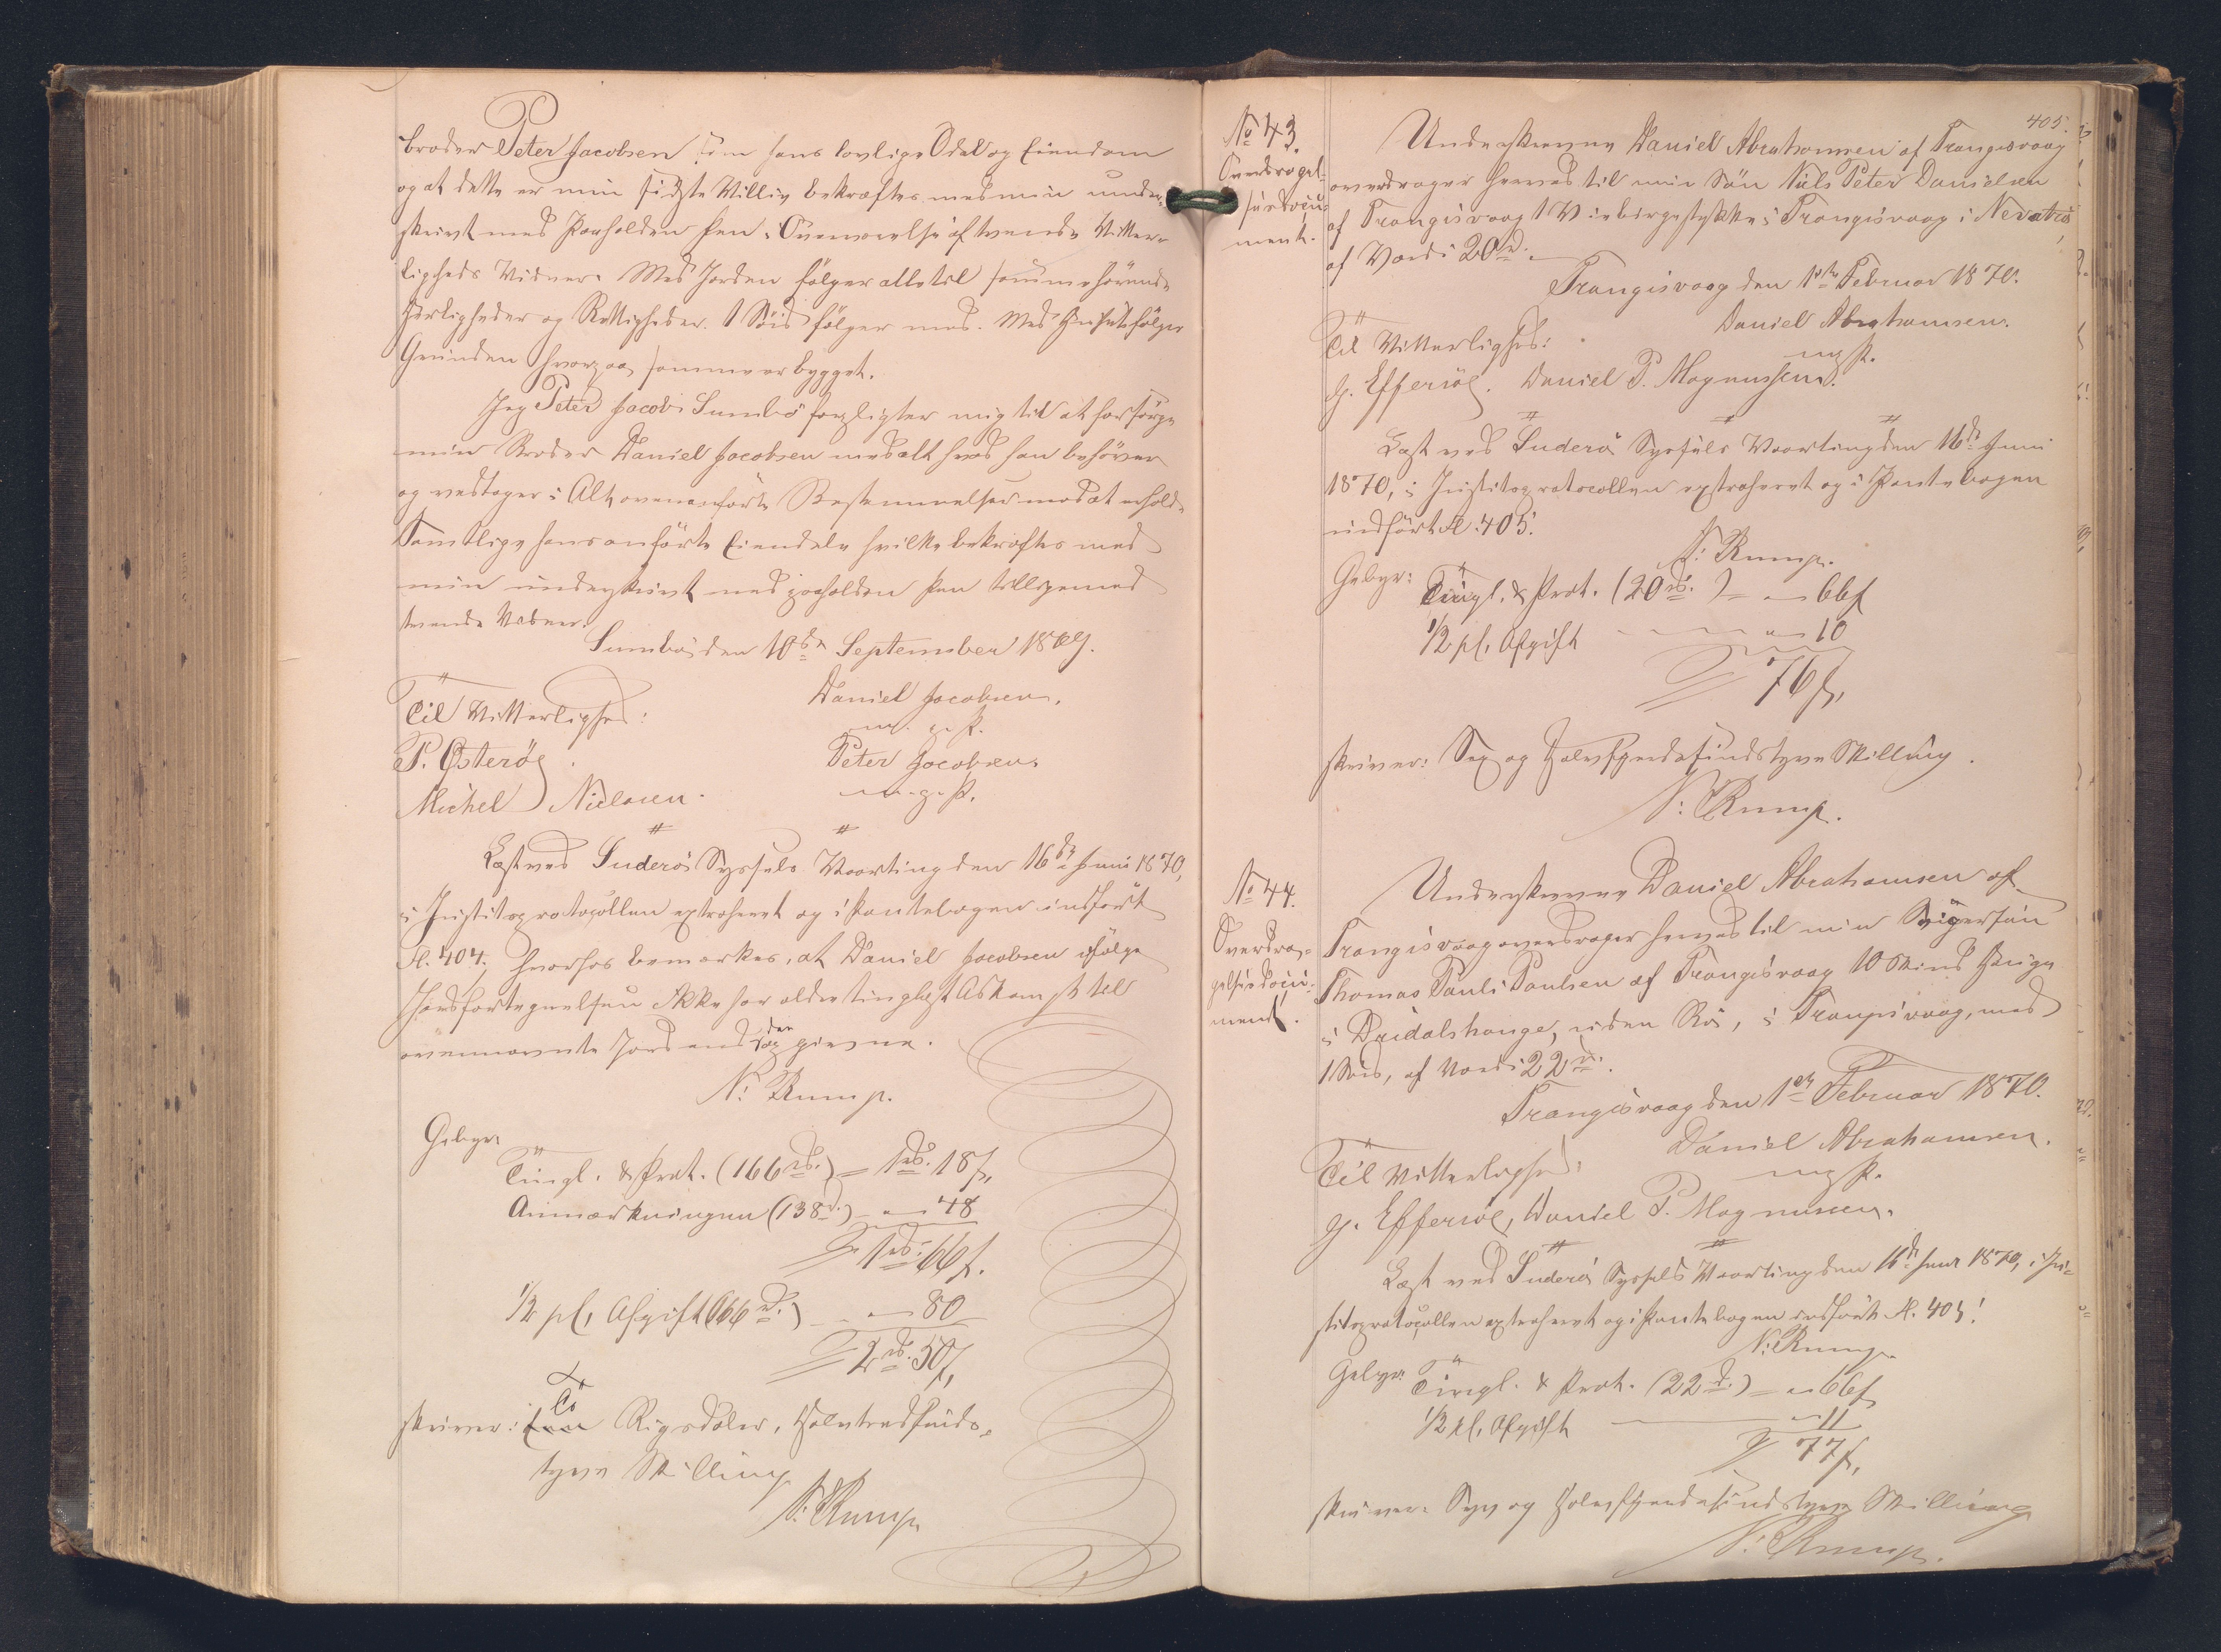 broder Peter Jacobsen som hans lovlige Odel og Eiendom
og at dette er min sidste Villie bekræftes med min under-
skrivt med Paaholden Pen i Overværelse af tvende Vitter-
ligheds Vidner. Med Jorden følger alle til samme hørende
Herligheder og Rettigheder. 1 Söid følger med. Med Huset følger
Grunden hvorpaa samme er bygget.
Jeg Peter Jacobs Sumbö forpligter mig til at forsörge
min Broder Daniel Jacobsen med alt hvad han behöver
og vedtager i Alt ovenanførte Bestemmelser mod at erholde
Samtlige hans anførte Eiendele hvilke bekræftes med
min underskrivt med paaholden Pen tilligemed
tvende Vidner.
Sumbö den 10de September 1869.
Til Vitterlighed:
Daniel Jacobsen.
m. p. P.
P. Østerö
Peter Jacobsen
m. p. P.
Michel Nielsen.
Læst ved Suderö Syssels Vaarting den 16de Juni 1870,
i Justitsprotocollen extraheret og i Pantebogen indført
Fl. 404. hvorhos bemærkes, at Daniel Jacobsen ifølge
Jordfortegnelsen ikke har aldre tinglæst Adkomst til
ovennævnte Jord end den givne.
N: Rump.
Gebyr:
Tingl. & Prot. (166 rd.) = 1 rd. 18 ſ,
Anmærkningen (138 d.) - " 48
1 rd. 66 ſ.
1/2 pCt Afgift (166 rd.) - " 80
2 rd. 50 ſ,
skriver: To Rigsdaler, Halvtredsinds-
tyve Skilling
N: Rump
405.
No 43.
Overdragel-
sesdocu-
ment.
Underskrevne Daniel Abrahamsen af Trangisvaag
overdrager herved til min Sön Niels Peter Danielsen
af Trangisvaag 1 Viebirgestykke i Trangisvaag i
af Værdi 20 rd.
Trangisvaag den 1ste Februar 1870.
Daniel Abrahamsen.
m p P.
Til Vitterlighed:
J. Effersöe. Daniel P. Magnussen.
Læst ved Suderö Syssels Vaarting den 16de Juni
1870, i Justitsprotocollen extraheret og i Pantebogen
indført Fl. 405.
N: Rump.
Gebyr:
Tingl. & Prot. (20 rd.) = " 66 ſ
1/2 pCt. Afgift " 10
76 ſ,
skriver: Sex og Halvfjerdsindstyve Skilling.
N: Rump.
No 44.
Overdra-
gelsesdocu-
ment.
Underskrevne Daniel Abrahamsen af
Trangisvaag overdrager herved til min Svigersön
Thomas Pauli Poulsen af Trangisvaag 10 Skind Hauge
i, uden Rö, i Trangisvaag, med
1 Söid, af Værdi 22 rd.
Trangisvaag den 1ste Februar 1870.
Daniel Abrahamsen.
m p P.
Til Vitterlighed:
J. Effersöe, Daniel P. Magnussen.
Læst ved Suderö Syssels Vaarting den 16de Juni 1870, i Ju-
stitsprotocollen extraheret og i Pantebogen indført Fl. 405.
N: Rump.
Gebyr:
Tingl. & Prot. (22 d.) = " 66 ſ
1/2 pCt. Afgift " 11
77 ſ,
skriver: Syv og Halvfjerdsindstyve Skilling
N: Rump.